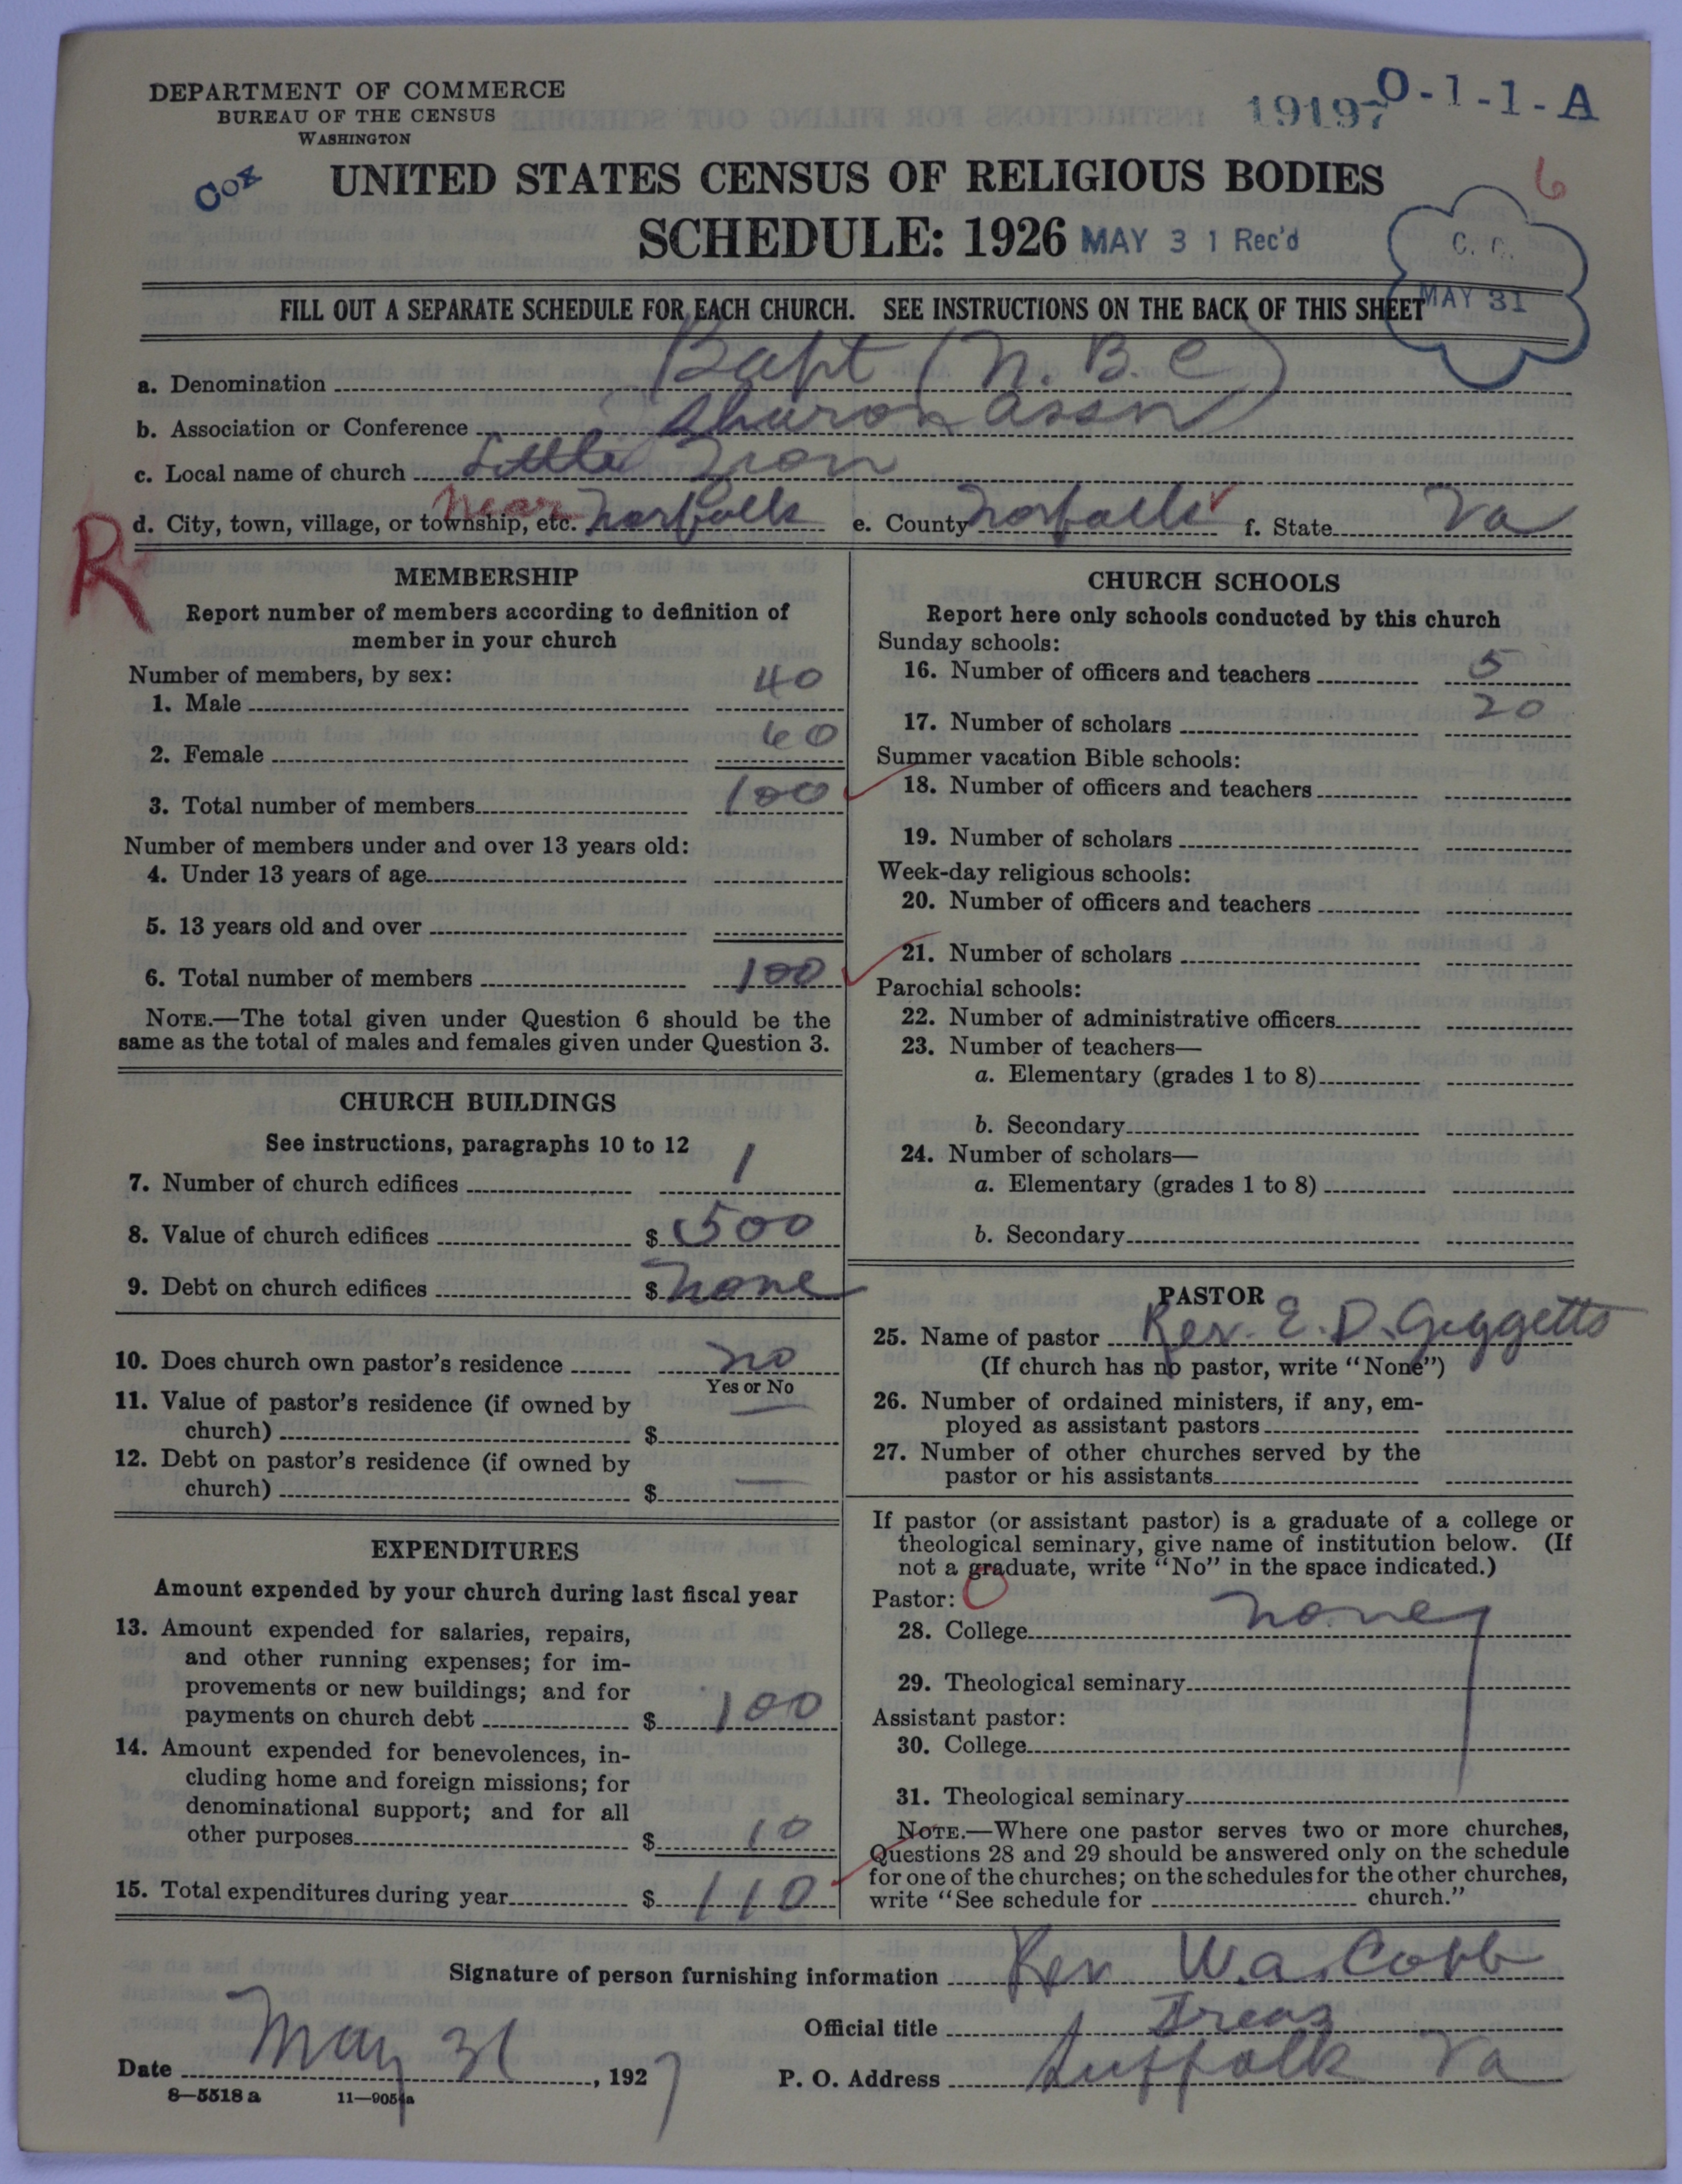 DEPARTMENT OF COMMERCE
BUREAU OF THE CENSUS
WASHINGTON
19197 0-1-1-A
Cox
6
UNITED STATES CENSUS OF RELIGIOUS BODIES
SCHEDULE: 1926 MAY 3 1 Rec'd
C. C.
MAY 31
FILL OUT A SEPARATE SCHEDULE FOR EACH CHURCH. SEE INSTRUCTIONS ON THE BACK OF THIS SHEET
a. Denomination Bapt (N.B.C)
b. Association or Conference Sharon assn
c. Local name of church Little Zion
d. City, town, village, or township, etc. near Norfolk e. County Norfolk f. State Va
R
MEMBERSHIP
Report number of members according to definition of
member in your church
Number of members, by sex:
1. Male 40
2. Female 60
3. Total number of members 100
Number of members under and over 13 years old:
4. Under 13 years of age
5. 13 years old and over
6. Total number of members 100
NOTE.—The total given under Question 6 should be the
same as the total of males and females given under Question 3.
CHURCH BUILDINGS
See instructions, paragraphs 10 to 12
7. Number of church edifices 1
8. Value of church edifices $ 500
9. Debt on church edifices $ none
10. Does church own pastor's residence no
Yes or No
11. Value of pastor's residence (if owned by
church) $ —
12. Debt on pastor's residence (if owned by
church) $ —
EXPENDITURES
Amount expended by your church during last fiscal year
13. Amount expended for salaries, repairs,
and other running expenses; for im-
provements or new buildings; and for
payments on church debt $ 100
14. Amount expended for benevolences, in-
cluding home and foreign missions; for
denominational support; and for all
other purposes $ 10
15. Total expenditures during year $ 110
CHURCH SCHOOLS
Report here only schools conducted by this church
Sunday schools:
16. Number of officers and teachers 5
17. Number of scholars 20
Summer vacation Bible schools:
18. Number of officers and teachers
19. Number of scholars
Week-day religious schools:
20. Number of officers and teachers
21. Number of scholars
Parochial schools:
22. Number of administrative officers
23. Number of teachers—
a. Elementary (grades 1 to 8)
b. Secondary
24. Number of scholars—
a. Elementary (grades 1 to 8)
b. Secondary
PASTOR
25. Name of pastor Rev. E. D. Giggetts
(If church has no pastor, write "None")
26. Number of ordained ministers, if any, em-
ployed as assistant pastors
27. Number of other churches served by the
pastor or his assistants
If pastor (or assistant pastor) is a graduate of a college or
theological seminary, give name of institution below. (If
not a graduate, write "No" in the space indicated.)
Pastor:
28. College none
29. Theological seminary
Assistant pastor:
30. College
31. Theological seminary
NOTE.—Where one pastor serves two or more churches,
Questions 28 and 29 should be answered only on the schedule
for one of the churches; on the schedules for the other churches,
write "See schedule for church."
Signature of person furnishing information Rev W. a. Cobb
Official title Treas
Date May 31, 1927 P. O. Address Suffolk Va
8—5518 a 11—9051a